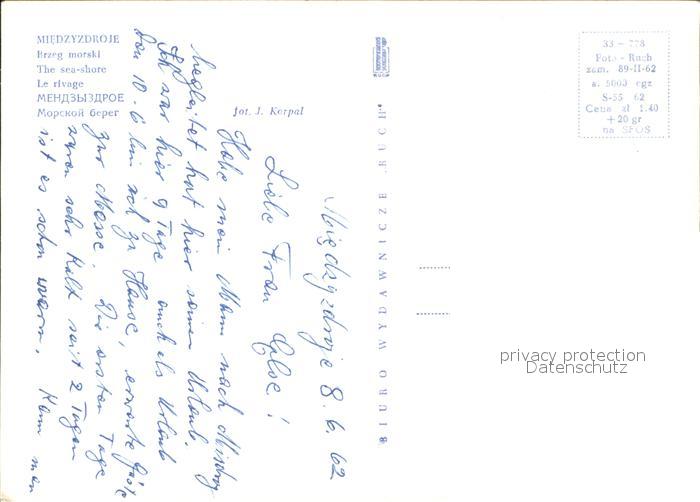 MIĘDZYZDROJE
Brzeg morski
The sea-shore
Le rivage
МЕНДЗЫЗДРОЕ
Морской берег
fot. J. Korpal
BIURO WYDAWNICZE „RUCH”
33 – 778
Foto - Ruch
zam. 89-II-62
n. 5000 egz
S-55 62
Cena zł 1.40
+ 20 gr
na SFOS
Międzyzdroje 8. 6. 62
Liebe Frau !
Habe mein Mann nach Misdroy
begleitet hat hier seinen Urlaub.
Ich war hier 9 Tage auch als Urlaub
Den 10. 6 bin ich zu Hause, erwarte Gäste
zur Messe. Die ersten Tage
waren sehr kalt seit 2 Tagen
ist es schon warm. Kann man
privacy protection
Datenschutz